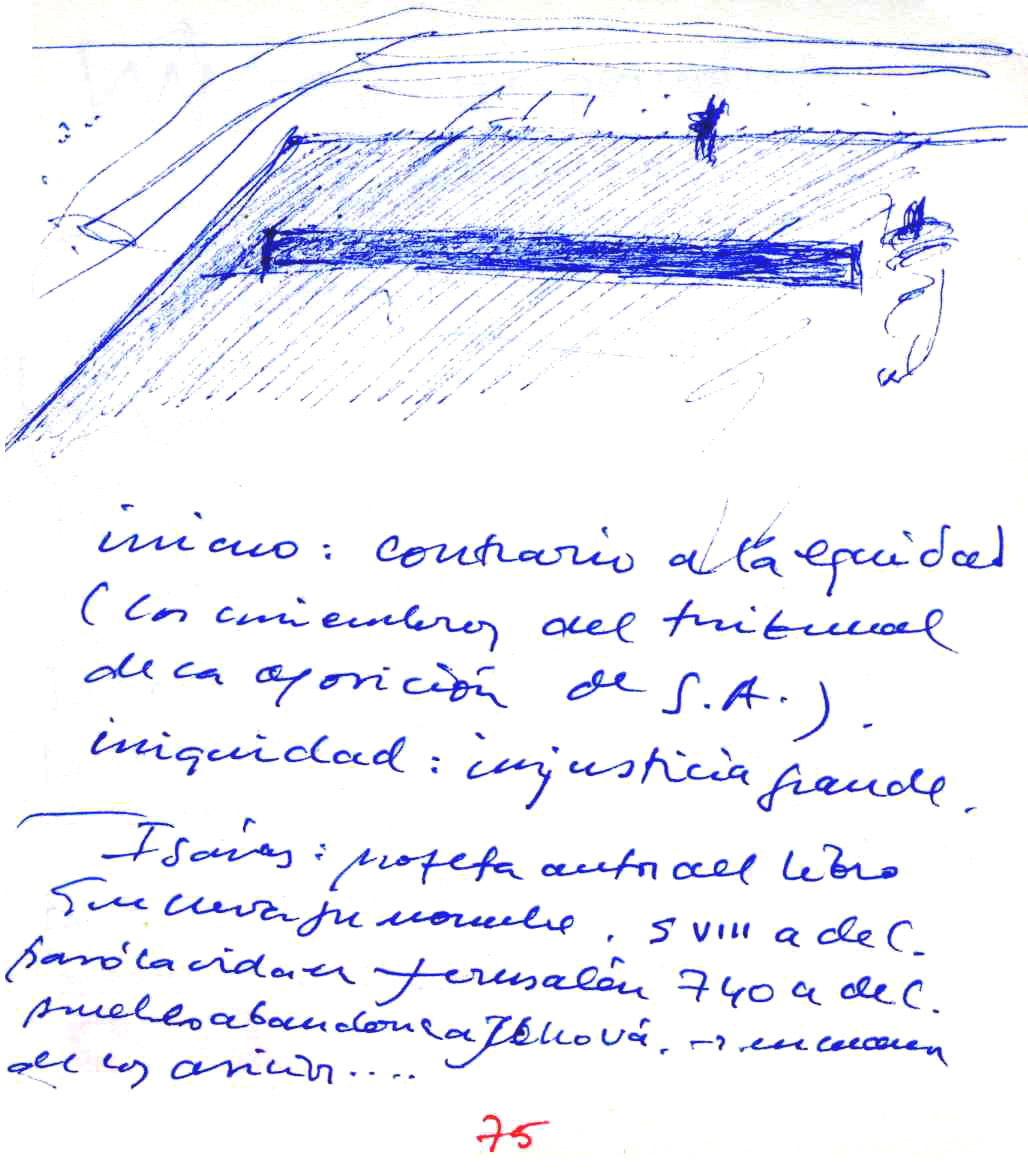 inicuo: contrario a la equidad
(los miembros del tribunal
de la oposición de S.A.).
iniquidad: injusticia grande.
Isaías: profeta autor del libro
que lleva su nombre. S VIII a de C.
pasó la vida en Jerusalén 740 a de C.
pueblo abandona a Jehová. →
de los asirios....
75